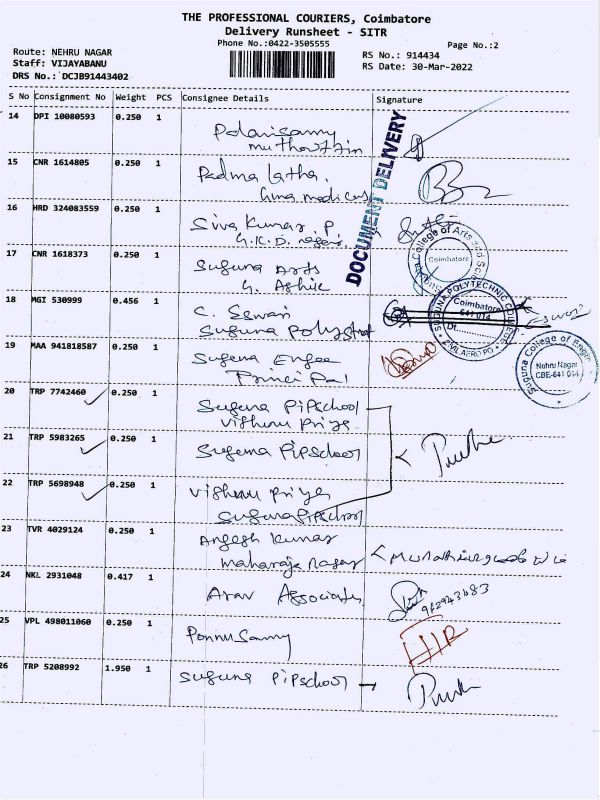 THE PROFESSIONAL COURIERS, Coimbatore
Delivery Runsheet - SITR
Phone No.:0422-3505555
Page No.:2
Route: NEHRU NAGAR
Staff: VIJAYABANU
DRS No.: DCJB91443402
RS No.: 914434
RS Date: 30-Mar-2022
S No Consignment No Weight PCS Consignee Details Signature
14 DPI 10080593 0.250 1
15 CNR 1614805 0.250 1
Padma Latha.
DOCUMENT DELIVERY
16 HRD 324083559 0.250 1
Siva Kumar P.
G.K.D. nagar
Suguna College of Arts and
Coimbatore
17 CNR 1618373 0.250 1
Suguna Arts
G. Ashik
18 MGI 530999 0.456 1
C. Eswari
Suguna Polytech
SUGUNA POLYTECHNIC COLLEGE
Coimbatore
641 014
Dt.
CIVIL AERO PO
19 MAA 941818587 0.250 1
Suguna Engee
Princi Pal
Suguna College of Engin
Nehru Nagar
CBE-641 014
20 TRP 7742460 0.250 1
Suguna Pipschool
Vishnu Priya
21 TRP 5983265 0.250 1
Suguna Pipschool
22 TRP 5698948 0.250 1
Vishnu Priya
Suguna Pipschool
23 TVR 4029124 0.250 1
Kumar
maharaja Nagar
24 NKL 2931048 0.417 1
Arav Associates
25 VPL 498011060 0.250 1
Ponnusamy
26 TRP 5208992 1.950 1
Suguna Pipschool